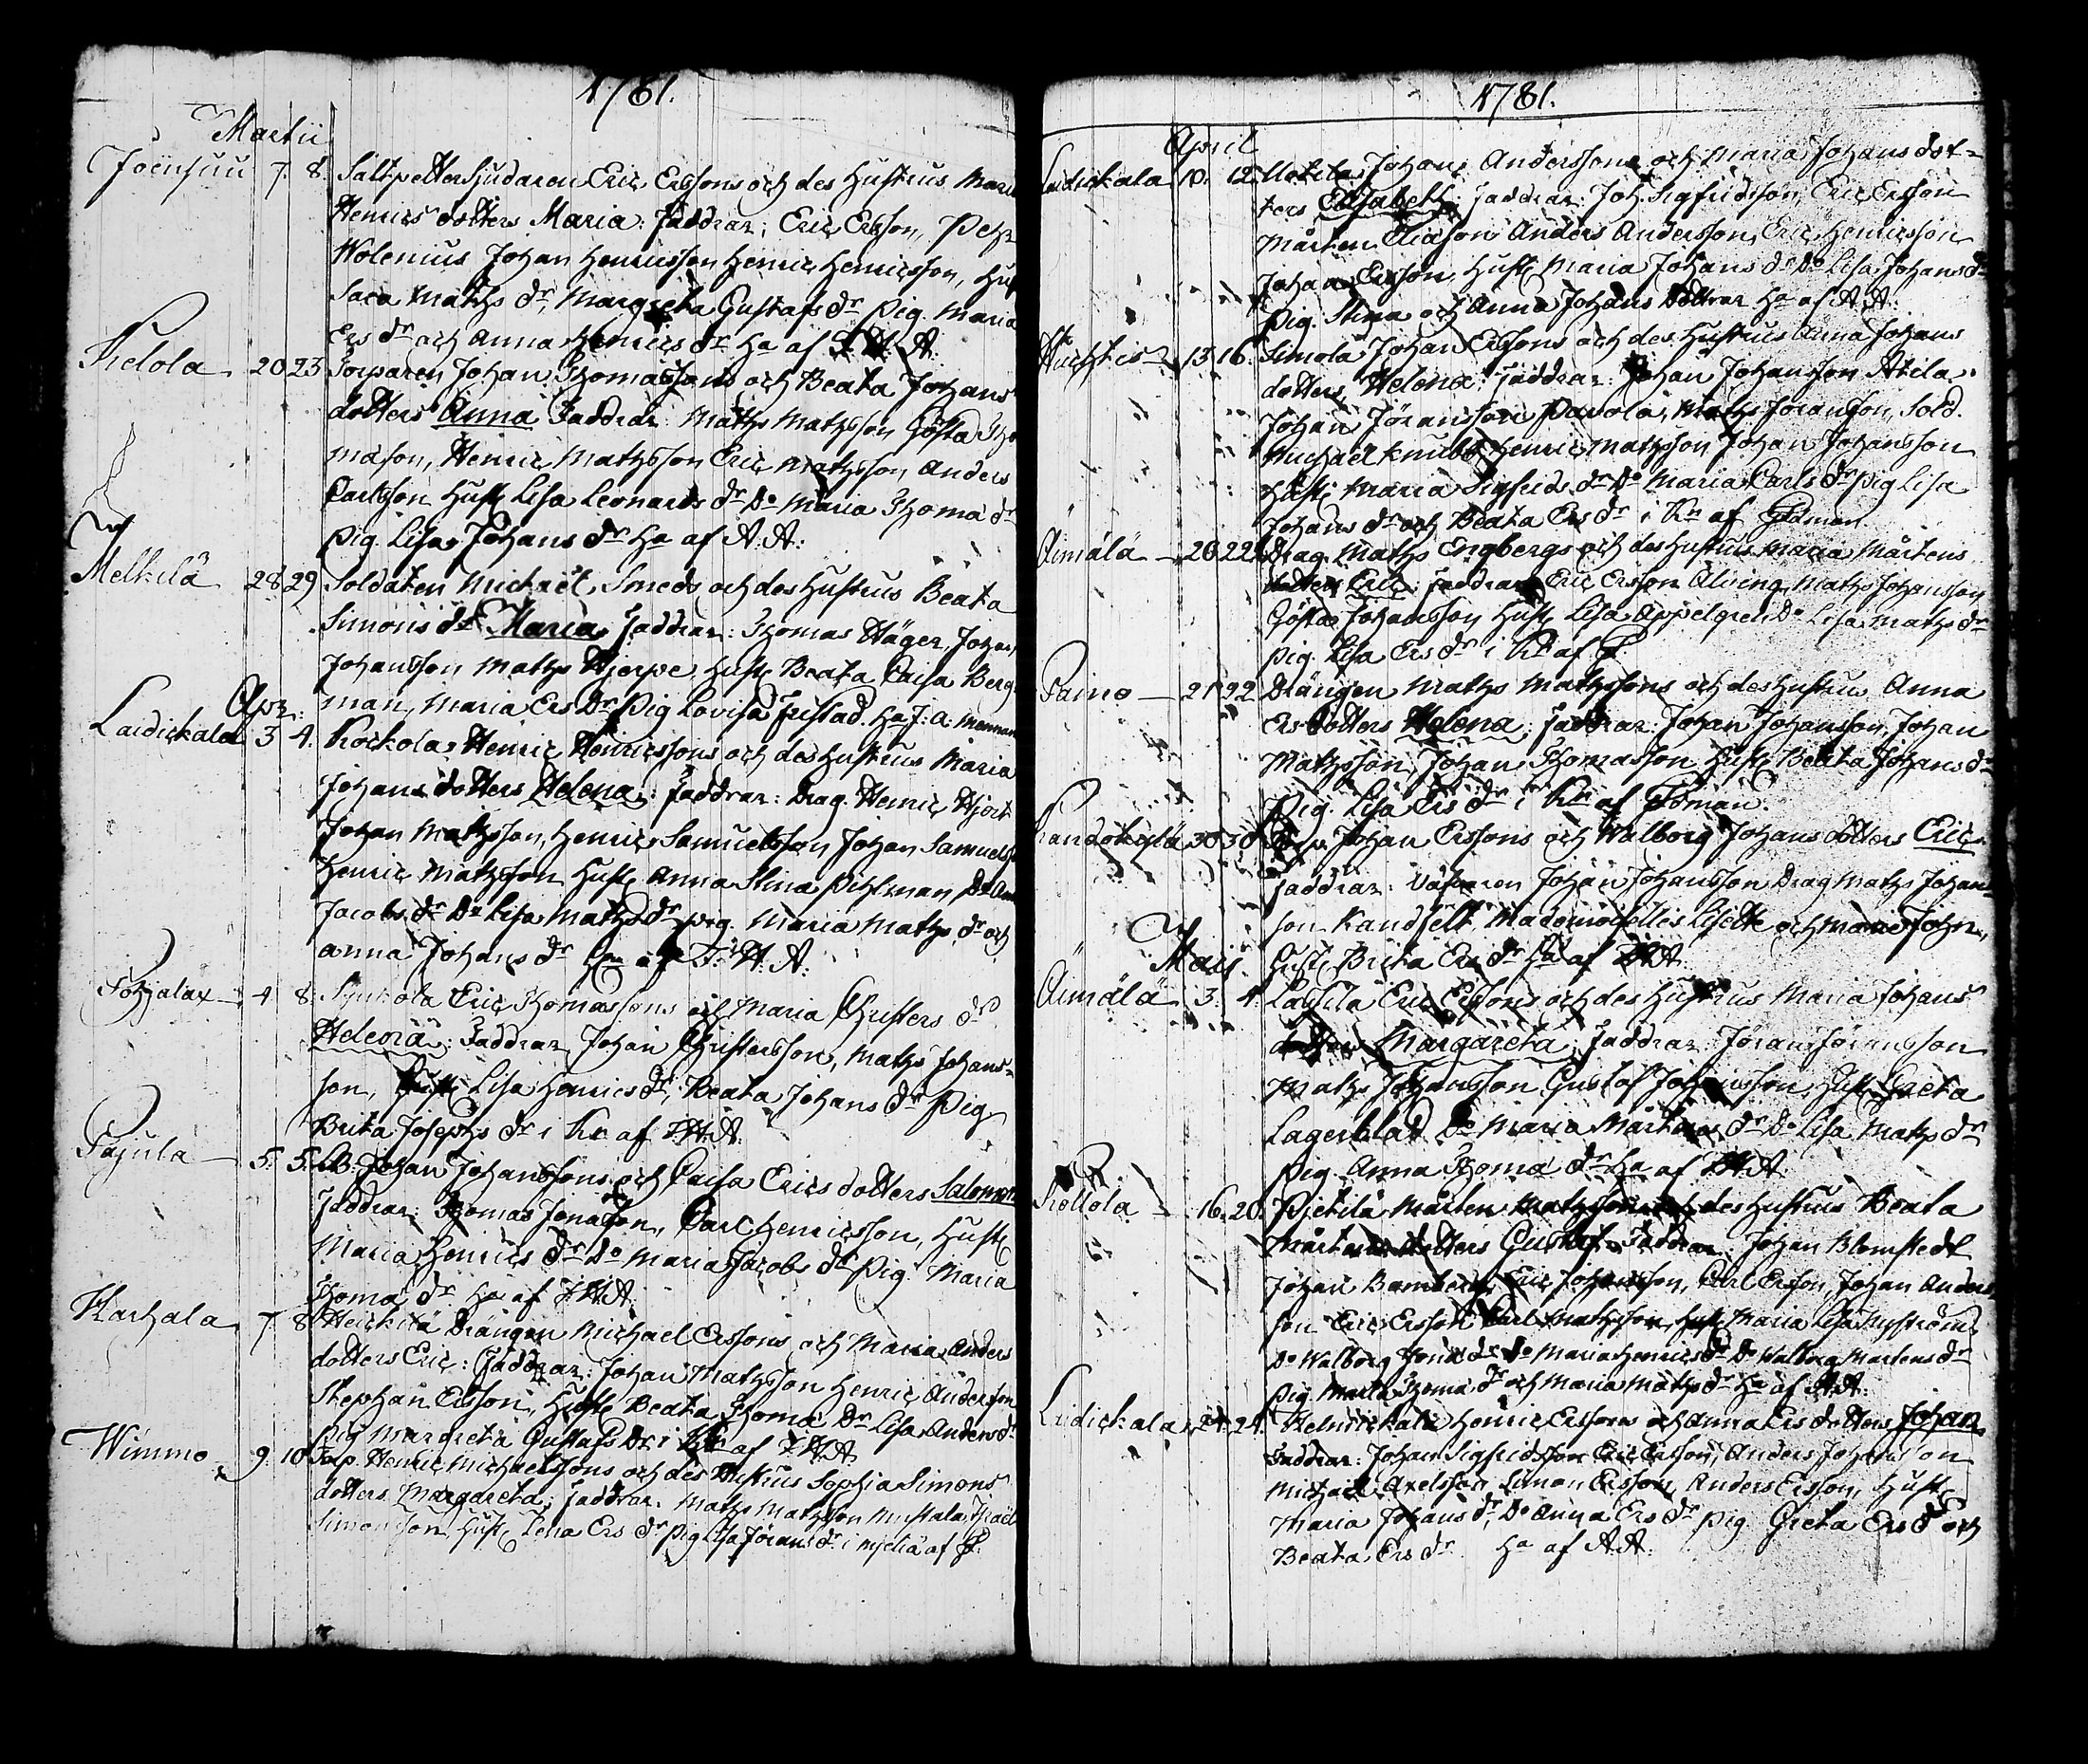 1781.
Martii
Joensuu 7. 8. Saltpettersjudaren Eric Erssons och des hustrus Maria
Henrics dotters Maria: faddrar: Eric Ersson, Pehr
Wolenius Johan Henricsson Henric Henricsson, Hust
Sara Maths dr, Margreta Gustafs dr pig. Maria
Ers dr och Anna Henrics dr Ha af
Kielola 20 23 Torparen Johan Thomassons och Beata Johans
dotters Anna Faddrar Maths Mathsson Gösta Tho
mason, Henric Mathsson Eric Mathsson, Anders
Carlsson Hust Lisa Leonards dr Do Maria Thoma dr
pig. Lisa Johans dr Ha af A. A:
Melkilä 28 29 Soldaten Michael Smeds och des hustrus Beata
Simons dr Maria faddrar: Thomas Häger, Johan
Johansson Maths Hjerpe Hust Beata Caisa Berg
man, Maria Ers Dr Pig Lovisa Ha
Apr:
Laidickala 3 4. Kockola Henric Henricssons och des hustrus Maria
Johans dotters Helena: faddrar: Drag. Henric Hjort
Johan Mathsson, Henric Samuelsson Johan Samuels
Henric Mathsson Hust Anna Stina Pihlman Do
Jacobs dr Do Lisa Maths dr pig. Maria Maths dr och
Anna Johans dr H. A:
Pohjalax 4 8. Eric Thomassons och Maria Christers dr
Helena: Faddrar Johan Christersson, Maths Johans-
son, Hust Lisa Henrics dr, Beata Johans dr Pig
Brita Josephs dr i Kr af
Pajula 5. 5. Johan Johanssons och Caisa Erics dotters Salomon
faddrar: Thomas Carl Henricsson, Hust
Maria Henrics dr Do Maria Jacobs dr pig. Maria
Thoma dr Ha af
Karhala 7 8 Heickilä Drängen Michael Erssons och Maria Anders
dotters Eric: faddrar: Johan Mathsson Henric Andersson
Stephan Ersson, Hust Beata Thoma Dr Lisa Anders dr
pig Margreta Gustafs Dr i Kr af
Wimmo 9. 10 Torp. Henric Michaelssons och des hustrus Sophia Simons
dotters Margareta: faddrar. Maths Mathsson
Simonsson Hust Lena Ers dr pig Lisa Jörans dr i af
1781.
April
Laidickala 10. 12. Johan Anderssons och Maria Johans dot-
ters Elisabeth: faddrar: Joh. Sigfridsson, Eric Ersson
Mårten Anders Andersson, Eric Henricsson
Johan Ersson, Hust Maria Johans dr Do Lisa Johans dr
pig. Stina och Anna Johans dottrar Ha af A A:
Huchtis 13 16. Simola Johan Erssons och des hustrus Anna Johans
dotters, Helena: faddrar: Johan Johansson
Johan Jöransson Pavola, Maths Jöransson, Sold.
Michael Knubb Henric Mathsson Johan Johansson
Hust: Maria Sigfrids dr Do Maria Carls dr pig Lisa
Johans dr och Beata Ers dr i Kr af
Äimälä 20 22 Drag. Maths Engbergs och des hustrus Maria Mårtens
dotters Eric: faddrar: Eric Ersson Maths Johansson
Gösta Johansson Hust Lisa Appelgren Do Lisa Maths dr
pig. Lisa Ers dr i Kr af
Paino 21 22 Drängen Maths Mathssons och des hustrus Anna
Ers dotters Helena: faddrar: Johan Johansson, Johan
Mathsson, Johan Thomasson Hust Beata Johans dr
Pig. Lisa Ers dr i Kr af
30 30 Johan Erssons och Walborg Johans dotters Eric
faddrar: Johan Johansson Drag Maths Johan-
son Mademoiselles Lisette och
Hust Brita Ers dr Ha af
Maij
Äimälä 3. 4. Lassila Eric Erssons och des hustrus Maria Johans
dotters Margareta: faddrar: Jöran Jöransson
Maths Johansson Gustaf Johansson, Hust Greta
Lagerblad Do Maria Mårtens dr Do Lisa Maths dr
pig. Anna Thoma dr Ha af
Kottola 16. 20. Pietilä Mårten Mathssons och des hustrus Beata
Mårtens dotters Gustaf: Faddrar: Johan Blomstedt
Johan Eric Johansson, Carl Ersson, Johan Anders
son Eric Ersson Carl Mathsson, Hust Maria Lisa Nyström
Do Walborg Do Maria Henrics dr Do Walborg Mårtens dr
pig. Marta Thoma dr och Maria Maths dr Ha af A A:
Laidickala 24. 24. Henric Erssons och Anna Ers dotters Johan
Faddrar: Johan Sigfridsson Eric Ersson, Anders Johansson
Michael Axelsson Simon Ersson, Anders Ersson, Hust
Maria Johans dr, Do Anna Ers dr pig. Greta Ers dr och
Beata Ers dr Ha af A. A: